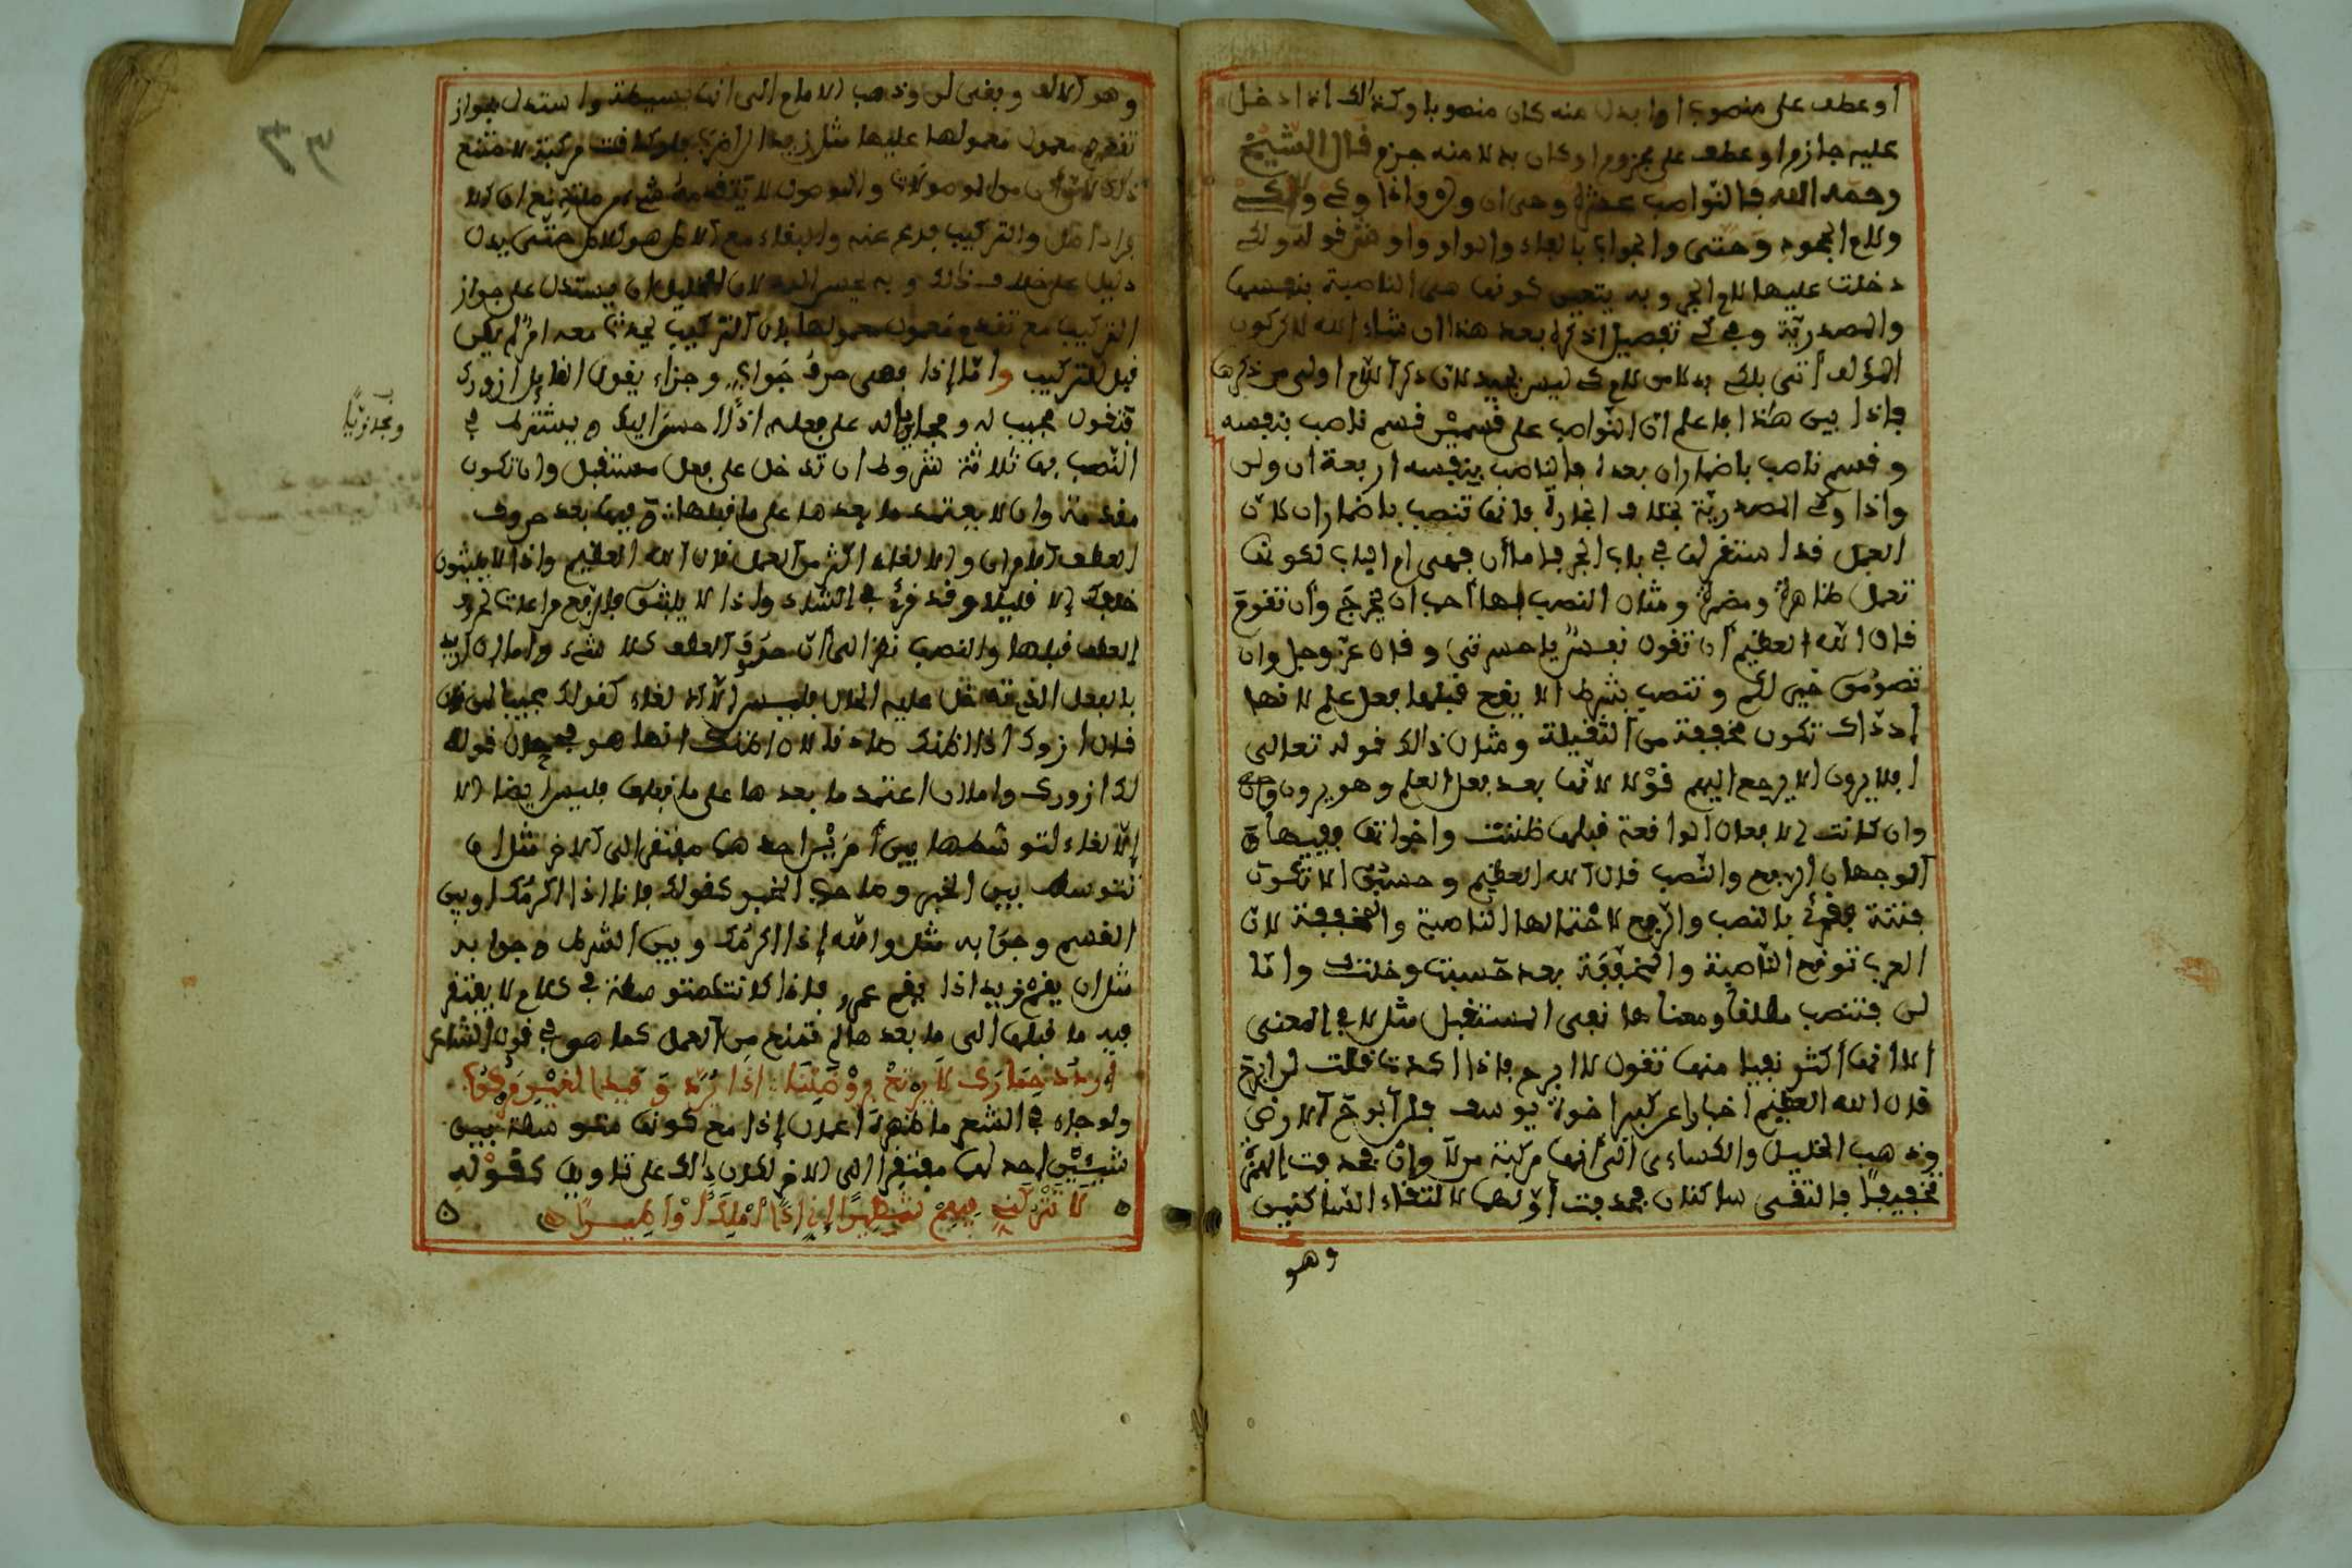 او عطف على منصوب او ابدل منه كان منصوبا وكذالك اذا دخل
عليه جازم او عطف على مجزوم او كان بدلا منه جزم قال الشيخ
رحمه الله فالنواصب عشرة وهي ان ولن واذا وكي ولام كي
ولام الجحود وحتى والجواب بالفاء والواو واو فقوله ولكي
دخلت عليها لام الجر وبه يتعين كونها هي الناصبة بنفسها
والمصدرية وفي كي تفصيل اذكره بعد هذا ان شاء الله لاكن كون
المؤلف أتى بلكي بدلا من لام كي ليس بجيد لان ذكر اللام اولى من ذكرها
فإذا بين هاذا فاعلم ان النواصب على قسمين قسم ناصب بنفسه
وقسم ناصب باضماران بعده فالناصب بنفسه اربعة ان ولن
واذا وكي المصدرية بخلاف الجارة فانها تنصب باضماران لان
العمل قد استقر لها في باب الجر فاما أن فهي ام الباب لكونها
تعمل ظاهرة ومضمرة ومثال النصب بها أحب ان تخرج وأن تقوم
قال الله العظيم أن تقول نفس يا حسرتى وقال عز وجل وان
تصوموا خير لكم وتنصب بشرط الا يقع قبلها فعل علم لانها
إذ ذاك تكون مخففة من الثقيلة ومثال ذالك قوله تعالى
افلا يرون الا يرجع اليهم قولا لانها بعد فعل العلم وهو يرون
وان كانت الافعال الواقعة قبلها ظننت واخواتها ففيها
الوجهان الرفع والنصب قال الله العظيم وحسبوا الا تكون
فتنة فقرئ بالنصب والرفع لاحتمالها الناصبة والمخففة لان
العرب توقع الناصبة والمخففة بعد حسبت وخلت واما
لن فتنصب مطلقا ومعناها نفي المستقبل مثل لا في المعنى
الا انها أكثر نفيا منها تقول لا ابرح فاذا اكدت قلت لن ابرح
قال الله العظيم اخبارا عن كبير اخوة يوسف فلن أبرح الارض
وذهب الخليل والكسائي الى انها مركبة من لا وان فحذفت الهمزة
تخفيفا فالتقى ساكنان فحذفت أولهما لالتقاء الساكنين
وهو
وهو الالف وبقى لن وذهب الامام الى انها بسيطة واستدل بجواز
تقديم معمول معمولها عليها مثل زيدا لن اضرب فلو كانت مركبة لامتنع
ذلك لان ان من الموصولات والموصول لا يتقدمه شيء من صلته نعم ان الا
براد اصل والتركيب فرع عنه والبقاء مع الاصل هو الاصل حتى يدل
دليل على خلاف ذلك وبه عسر الله لان للخليل ان يستدل على جواز
التركيب مع تقدم معمول معمولها بان التركيب يحدث معه امر لم يكن
قبل التركيب واما إذا فهى حرف جواب وجزاء يقول القايل ازورك
فتكون مجيب له ومجازيا له على فعله اذا احسن اليك ويشترط في
النصب بها ثلاثة شروط ان تدخل على فعل مستقبل وان تكون
مقدمة وان لا يعتمد ما بعدها على ما قبلها فيها بعد حروف
العطف الامران والالغاء اكثر من العمل قال الله العظيم واذا لا يلبثون
خلفك الا قليلا وقد قرئ في الشاذ واذا لا يلبثوا فالرفع مراعات لحرف
العطف قبلها والنصب نظرا الى أن حرف العطف كلا شيء واما ان اريد
بالفعل الذي تدخل عليه الحال فليس الا الالغاء كقولك مجيبا لمن قال
قال ازورك اذا اظنك صادقا لان اظنك انما هو في حال قوله
لك ازورك واما ان اعتمد ما بعدها على ما قبلها فليس ايضا الا
الالغاء لتوسطها بين أمرين احدهما مفتقر الى الاخر مثل ان
تتوسط بين المخبر وصاحب الخبر كقولك فانا اذا اكرمك او بين
القسم وجوابه مثل والله إذا اكرمك وبين الشرط وجوابه
مثل ان يقم زيد اذا يقم عمرو فاذا كانت متوسطة في كلام لا يفتقر
فيه ما قبلها الى ما بعدها لم تمنع من العمل كما هو في قول الشاعر
اردد حمارك لا يرتع بروضتنا اذا يرد وقيد العير مكروب
ولو جاء في الشعر ما ظهره اعمال إذا مع كونها متوسطة بين
شيئين احدهما مفتقر الى الاخر لكان ذالك على تاويل كقوله
لا تتركني فيهم شطيرا إني إذا أهلك أو أطيرا